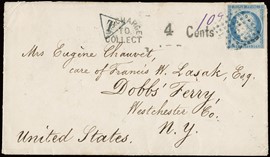 CHARGE
TO
COLLECT
4 Cents
10c
Mrs Eugène Chauvet,
care of Francis W. Lasak, Esq.
Dobbs' Ferry,
Westchester Co.
N.Y.
United States.